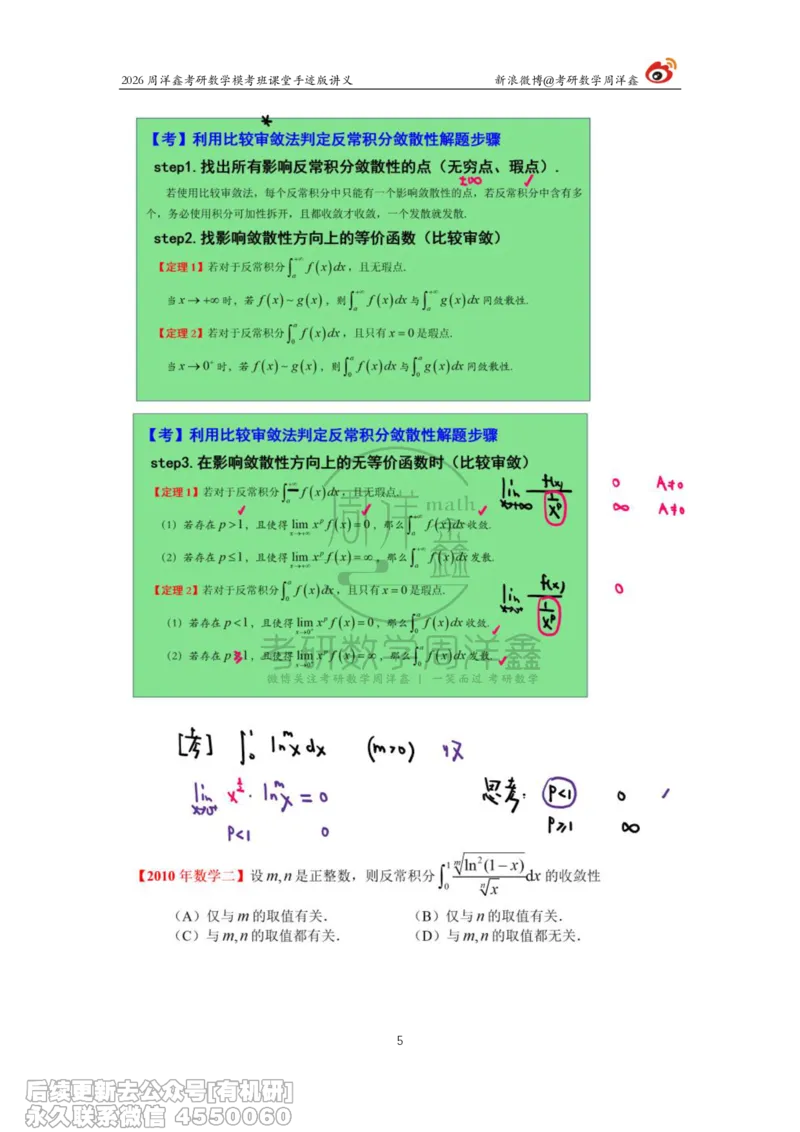 2026 周洋鑫考研数学模考班课堂手迹版讲义 新浪微博@考研数学周洋鑫
*
【考】利用比较审敛法判定反常积分敛散性解题步骤
step1.找出所有影响反常积分敛散性的点（无穷点、瑕点）.
±∞ ✓
若使用比较审敛法，每个反常积分中只能有一个影响敛散性的点，若反常积分中含有多
个，务必使用积分可加性拆开，且都收敛才收敛，一个发散就发散.
step2.找影响敛散性方向上的等价函数（比较审敛）
【定理1】若对于反常积分∫_a^{+∞} f(x)dx，且无瑕点.
当 x→+∞ 时，若 f(x)~g(x)，则∫_a^{+∞} f(x)dx 与∫_a^{+∞} g(x)dx 同敛散性.
【定理2】若对于反常积分∫_0^a f(x)dx，且只有 x=0 是瑕点.
当 x→0⁺ 时，若 f(x)~g(x)，则∫_0^a f(x)dx 与∫_0^a g(x)dx 同敛散性.
【考】利用比较审敛法判定反常积分敛散性解题步骤
step3.在影响敛散性方向上的无等价函数时（比较审敛）
【定理1】若对于反常积分∫_a^{+∞} f(x)dx，且无瑕点.
lim_{x→+∞} f(x)/(1/x^p) 0 A≠0
∞ A≠0
（1）若存在 p>1，且使得 lim_{x→+∞} x^p f(x)=0，那么∫_a^{+∞} f(x)dx 收敛.
（2）若存在 p≤1，且使得 lim_{x→+∞} x^p f(x)=∞，那么∫_a^{+∞} f(x)dx 发散.
【定理2】若对于反常积分∫_0^a f(x)dx，且只有 x=0 是瑕点.
lim_{x→0⁺} f(x)/(1/x^p) 0
（1）若存在 p<1，且使得 lim_{x→0⁺} x^p f(x)=0，那么∫_0^a f(x)dx 收敛.
（2）若存在 p≥1，且使得 lim_{x→0⁺} x^p f(x)=∞，那么∫_0^a f(x)dx 发散.
周洋鑫 math
考研数学周洋鑫
微博关注考研数学周洋鑫 | 一笑而过 考研数学
[考] ∫_0^1 ln^m x dx (m>0) 收
lim_{x→0⁺} x^{1/2}·ln^m x = 0
p<1 0
思考: p<1 0
p≥1 ∞
【2010 年数学二】设 m,n 是正整数，则反常积分∫_0^1 \sqrt[m]{ln²(1−x)}/\sqrt[n]{x} dx 的收敛性
（A）仅与 m 的取值有关. （B）仅与 n 的取值有关.
（C）与 m,n 的取值都有关. （D）与 m,n 的取值都无关.
5
后续更新去公众号[有机研]
永久联系微信 4550060